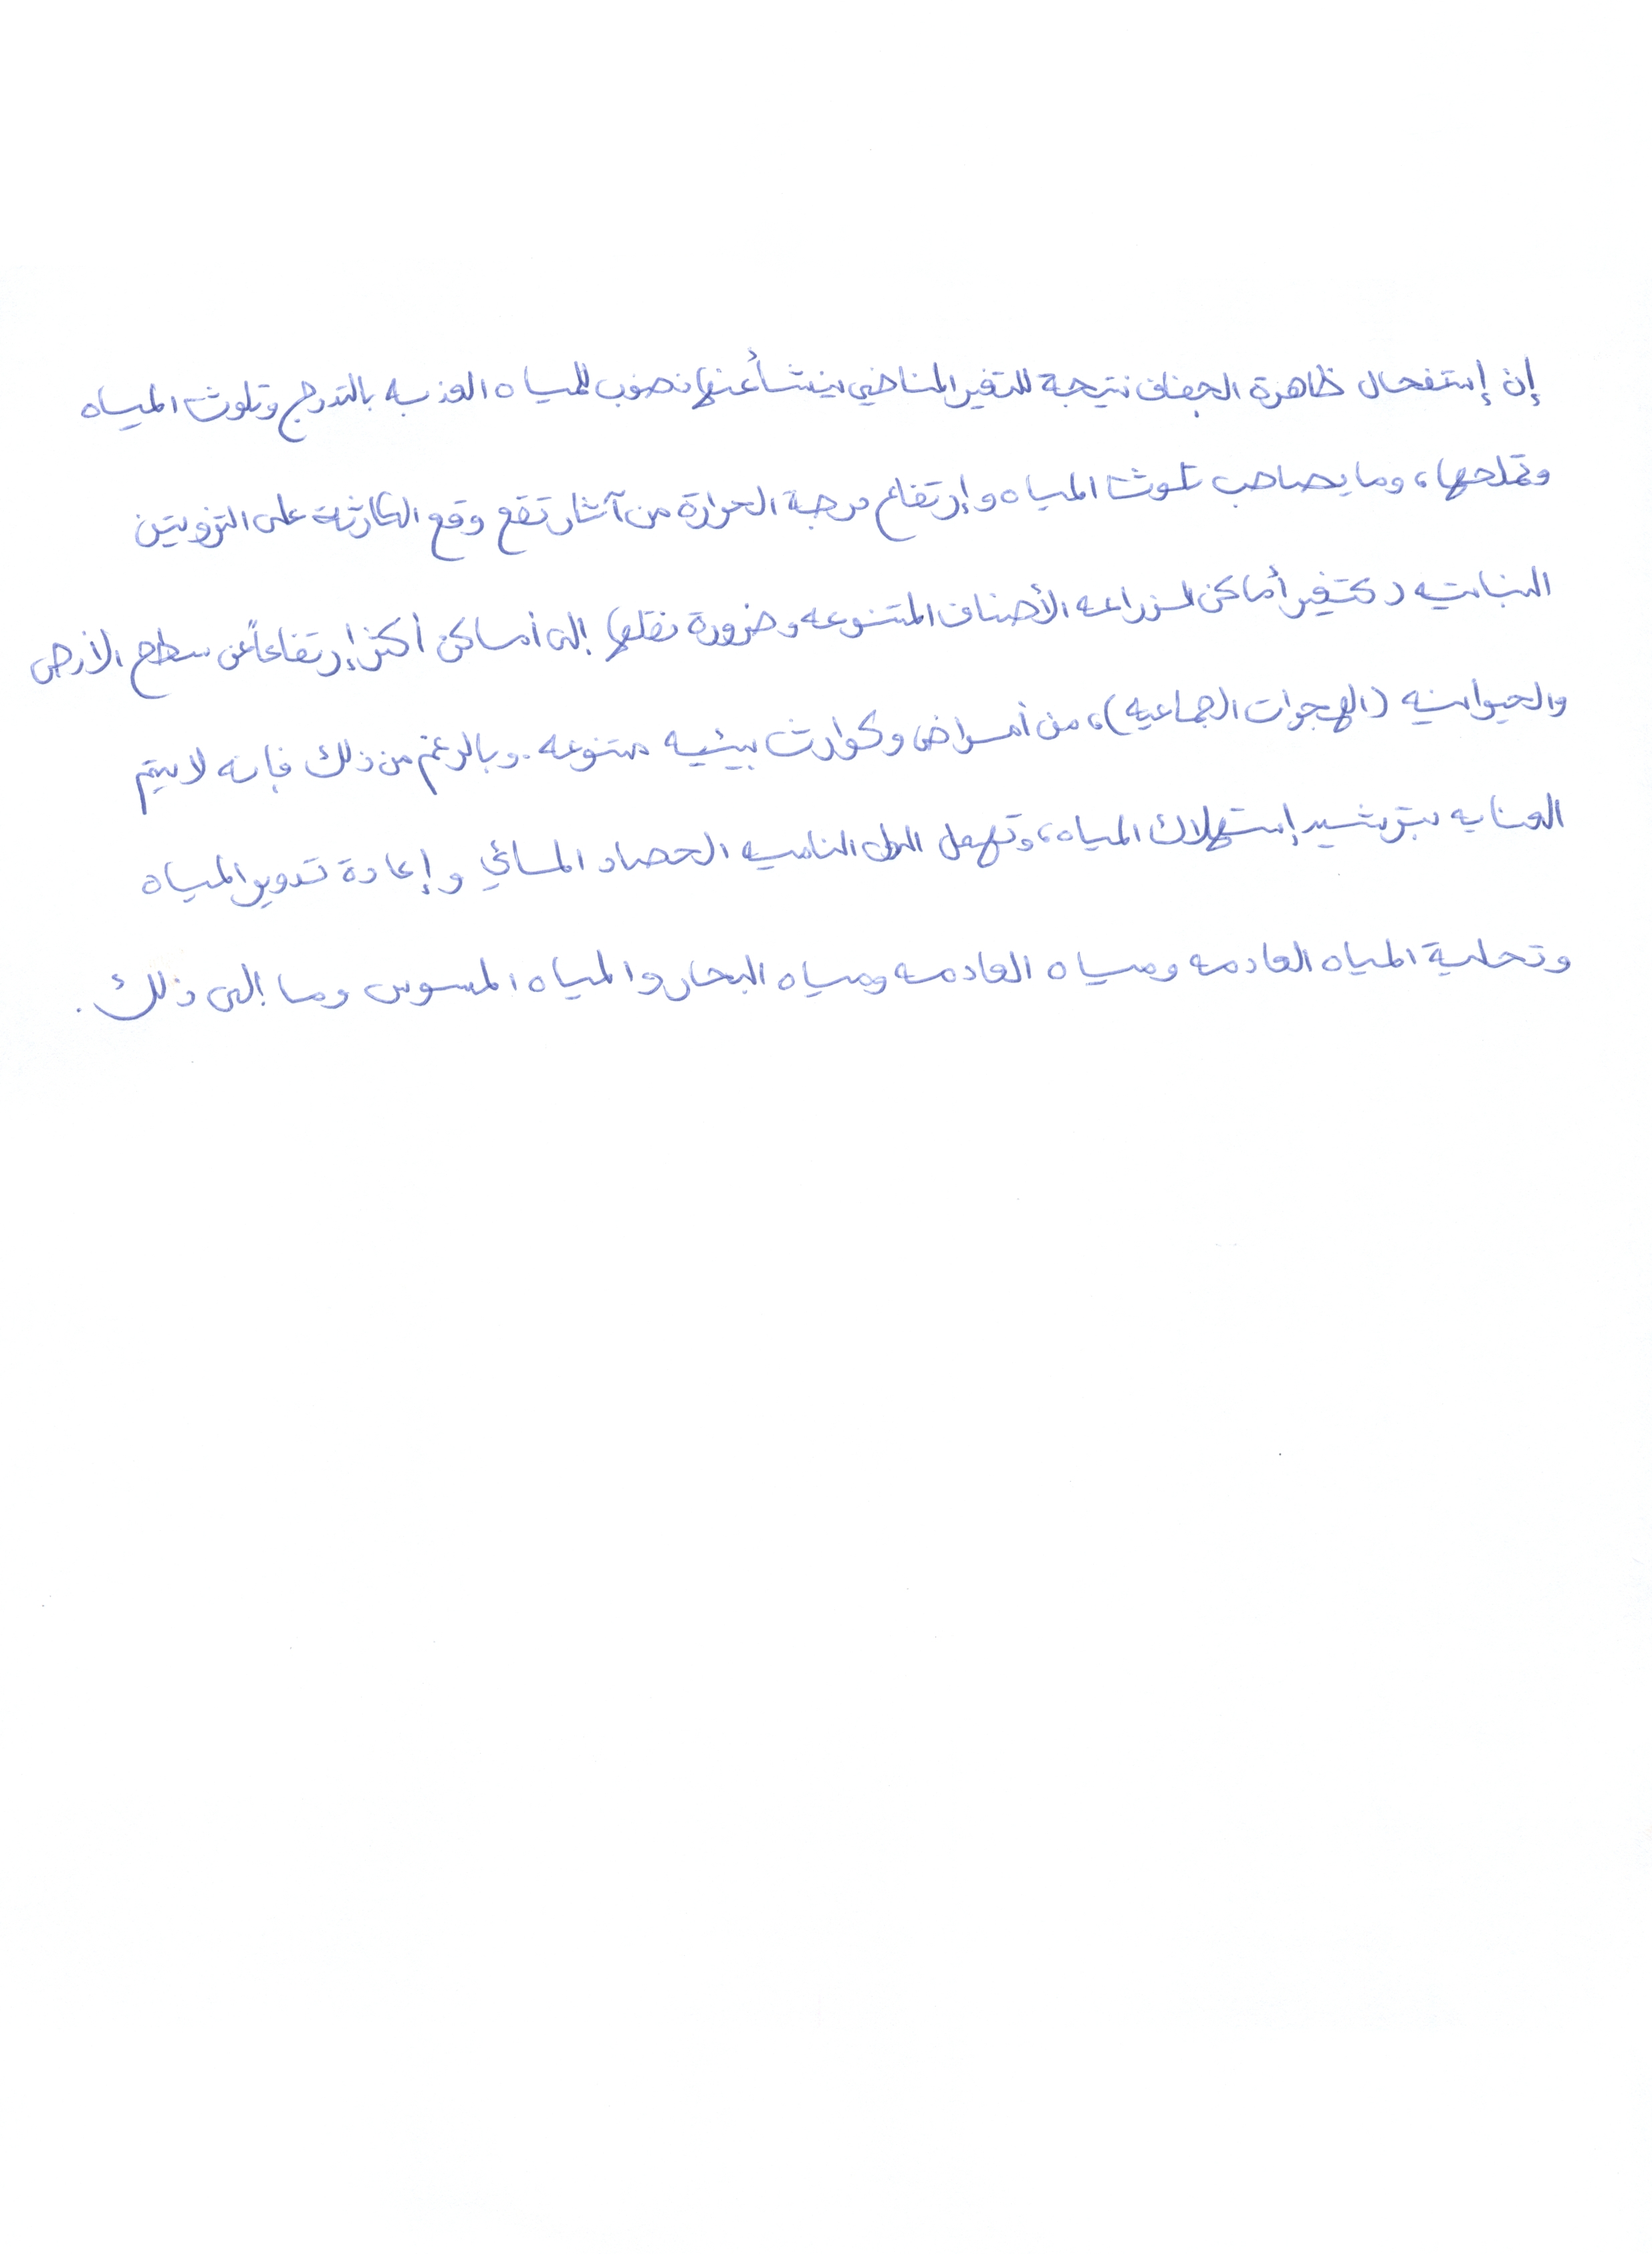 إن إستفحال ظاهرة الجفاف نتيجة للتغير المناخي ينشأ عنها نضوب للمياه العذبه بالتدرج وتلوث المياه
وتملحها، وما يصاحب تلوث المياه وإرتفاع درجة الحرارة من آثار تقع وقع الكارثة على الثروتين
النباتيه كتغير أماكن لزراعه الأصناف المتنوعه وضرورة نقلها إلى أماكن أكثر إرتفاعاً عن سطح الأرض
والحيوانيه (الهجرات الجماعيه)، من أمراض وكوارث بيئيه متنوعه. وبالرغم من ذلك فإنه لا يتم
العنايه بترشيد إستهلاك المياه، وتهمل الدول الناميه الحصاد المائي وإعادة تدوير المياه
وتحلية المياه العادمه ومياه العادمه ومياه البحار والمياه المسوس وما إلى ذلك.